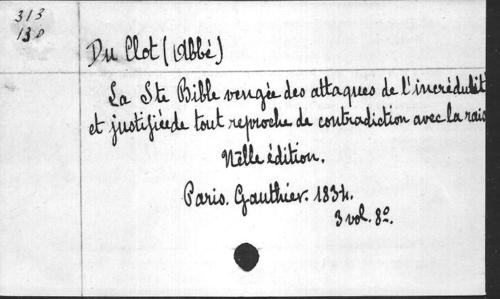 313
13 D
Du Clot (Abbé)
La Ste Bible vengée des attaques de l'incrédulit
et justifiée de tout reproche de contradiction avec la rais
Nelle édition.
Paris. Gauthier. 1834.
3 vol. 8º.